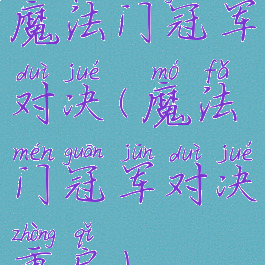 魔法门冠军
duì jué mó fǎ
对决(魔法
mén guān jūn duì jué
门冠军对决
zhòng qǐ
重启)